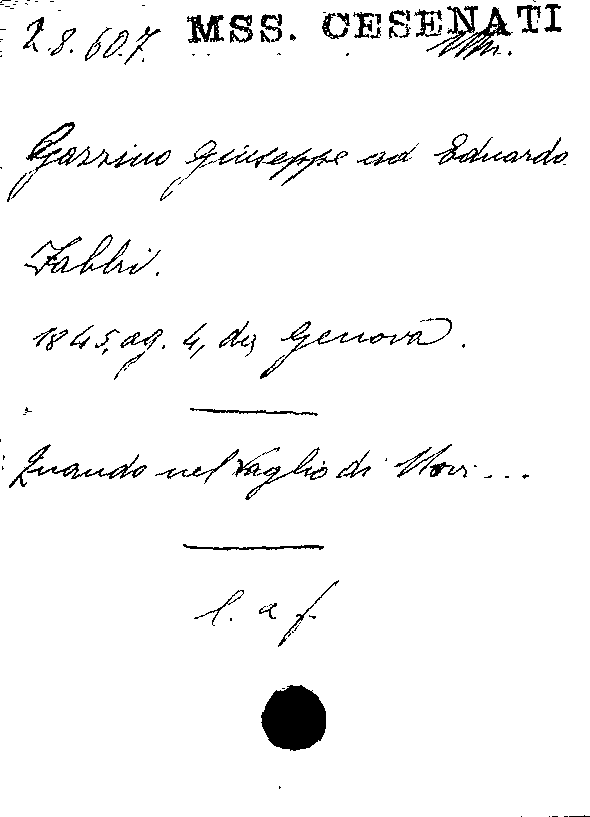 28.607. MSS. CESENATI
Gazzino Giuseppe ad Eduardo
Fabbri.
1845, ag. 4, da Genova.
Quando nel Vaglio di Novi...
l. a f.